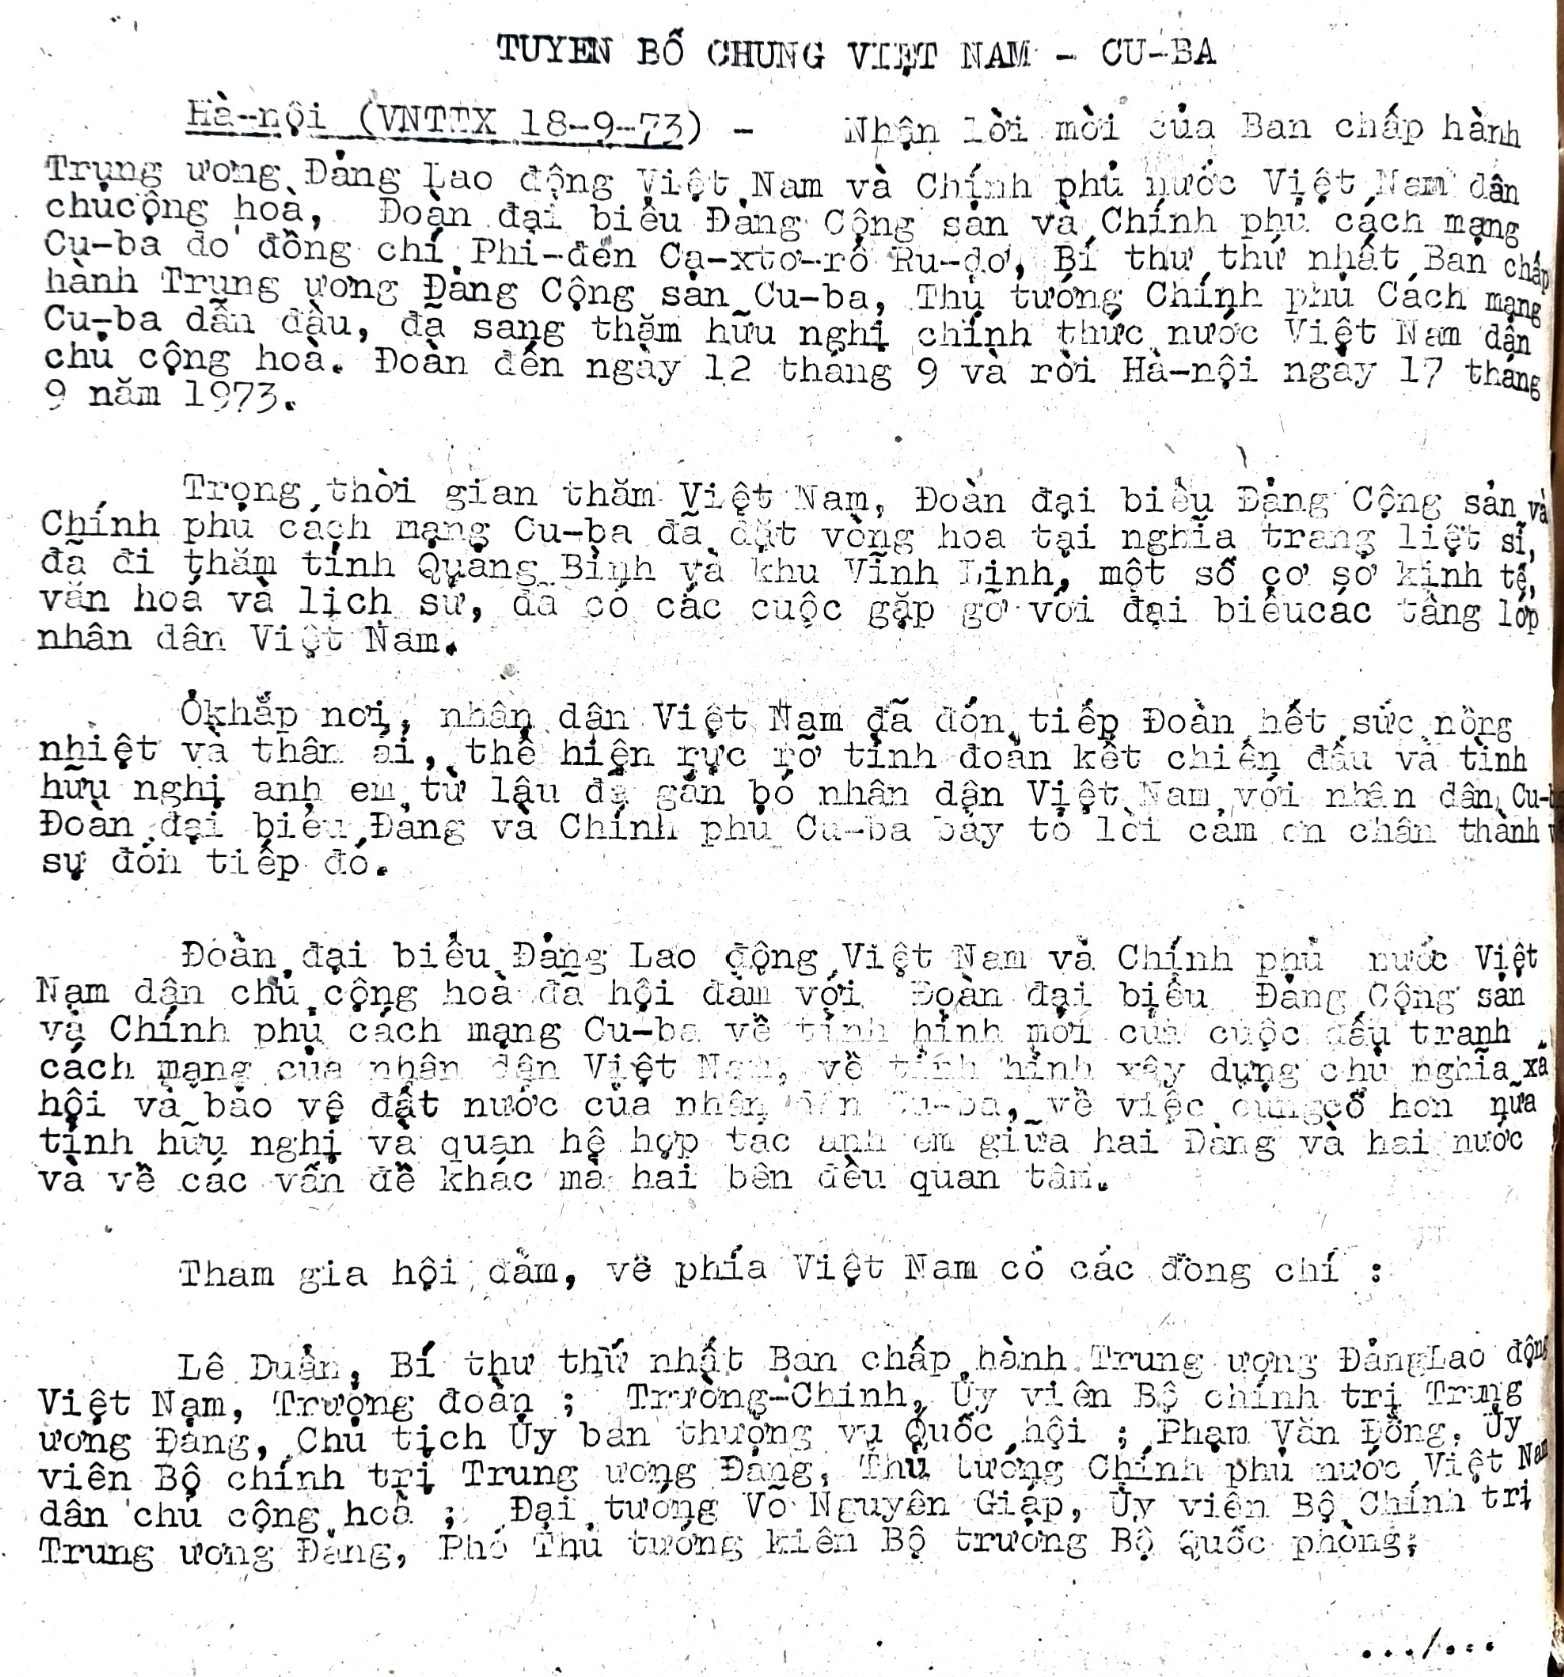 TUYEN BỐ CHUNG VIỆT NAM - CU-BA
Hà-nội (VNTTX 18-9-73) - Nhận lời mời của Ban chấp hành
Trung ương Đảng Lao động Việt Nam và Chính phủ nước Việt Nam dân
chủcộng hoà, Đoàn đại biểu Đảng Cộng sản và Chính phủ cách mạng
Cu-ba do đồng chí Phi-đen Ca-xtơ-rô Ru-dơ, Bí thư thứ nhất Ban chấp
hành Trung ương Đảng Cộng sản Cu-ba, Thủ tướng Chính phủ Cách mạng
Cu-ba dẫn đầu, đã sang thăm hữu nghị chính thức nước Việt Nam dân
chủ cộng hoà. Đoàn đến ngày 12 tháng 9 và rời Hà-nội ngày 17 tháng
9 năm 1973.
Trong thời gian thăm Việt Nam, Đoàn đại biểu Đảng Cộng sản và
Chính phủ cách mạng Cu-ba đã đặt vòng hoa tại nghĩa trang liệt sĩ,
đã đi thăm tỉnh Quảng Bình và khu Vĩnh Linh, một số cơ sở kinh tế,
văn hoá và lịch sử, đã có các cuộc gặp gỡ với đại biểucác tầng lớp
nhân dân Việt Nam.
Ởkhắp nơi, nhân dân Việt Nam đã đón tiếp Đoàn hết sức nồng
nhiệt và thân ái, thể hiện rực rỡ tình đoàn kết chiến đấu và tình
hữu nghị anh em từ lâu đã gắn bó nhân dân Việt Nam với nhân dân Cu-
Đoàn đại biểu Đảng và Chính phủ Cu-ba bày tỏ lời cảm ơn chân thành
sự đón tiếp đó.
Đoàn đại biểu Đảng Lao động Việt Nam và Chính phủ nước Việt
Nam dân chủ cộng hoà đã hội đàm với Đoàn đại biểu Đảng Cộng sản
và Chính phủ cách mạng Cu-ba về tình hình mới của cuộc đấu tranh
cách mạng của nhân dân Việt Nam, về tình hình xây dựng chủ nghĩa xã
hội và bảo vệ đất nước của nhân dân Cu-ba, về việc củngcố hơn nữa
tình hữu nghị và quan hệ hợp tác anh em giữa hai Đảng và hai nước
và về các vấn đề khác mà hai bên đều quan tâm.
Tham gia hội đàm, về phía Việt Nam có các đồng chí :
Lê Duẩn, Bí thư thứ nhất Ban chấp hành Trung ương ĐảngLao động
Việt Nam, Trưởng đoàn ; Trường-Chinh, Ủy viên Bộ chính trị Trung
ương Đảng, Chủ tịch Ủy ban thường vụ Quốc hội ; Phạm Văn Đồng, Ủy
viên Bộ chính trị Trung ương Đảng, Thủ tướng Chính phủ nước Việt Nam
dân chủ cộng hoà ; Đại tướng Võ Nguyên Giáp, Ủy viên Bộ Chính trị
Trung ương Đảng, Phó Thủ tướng kiên Bộ trưởng Bộ Quốc phòng;
.../...